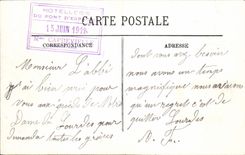 HOTELLERIE
DU PONT D'ESPAGNE
15 JUIN 1926
CARTE POSTALE
CORRESPONDANCE
ADRESSE
Monsieur l'abbé
j'ai bien prié pour
vous aux pieds de Notre
Dame de Lourdes pour
demander toutes les grâces
dont vous avez besoin
nous avons un temps
magnifique nous n'avons
qu'un regret c'est de
quitter Lourdes